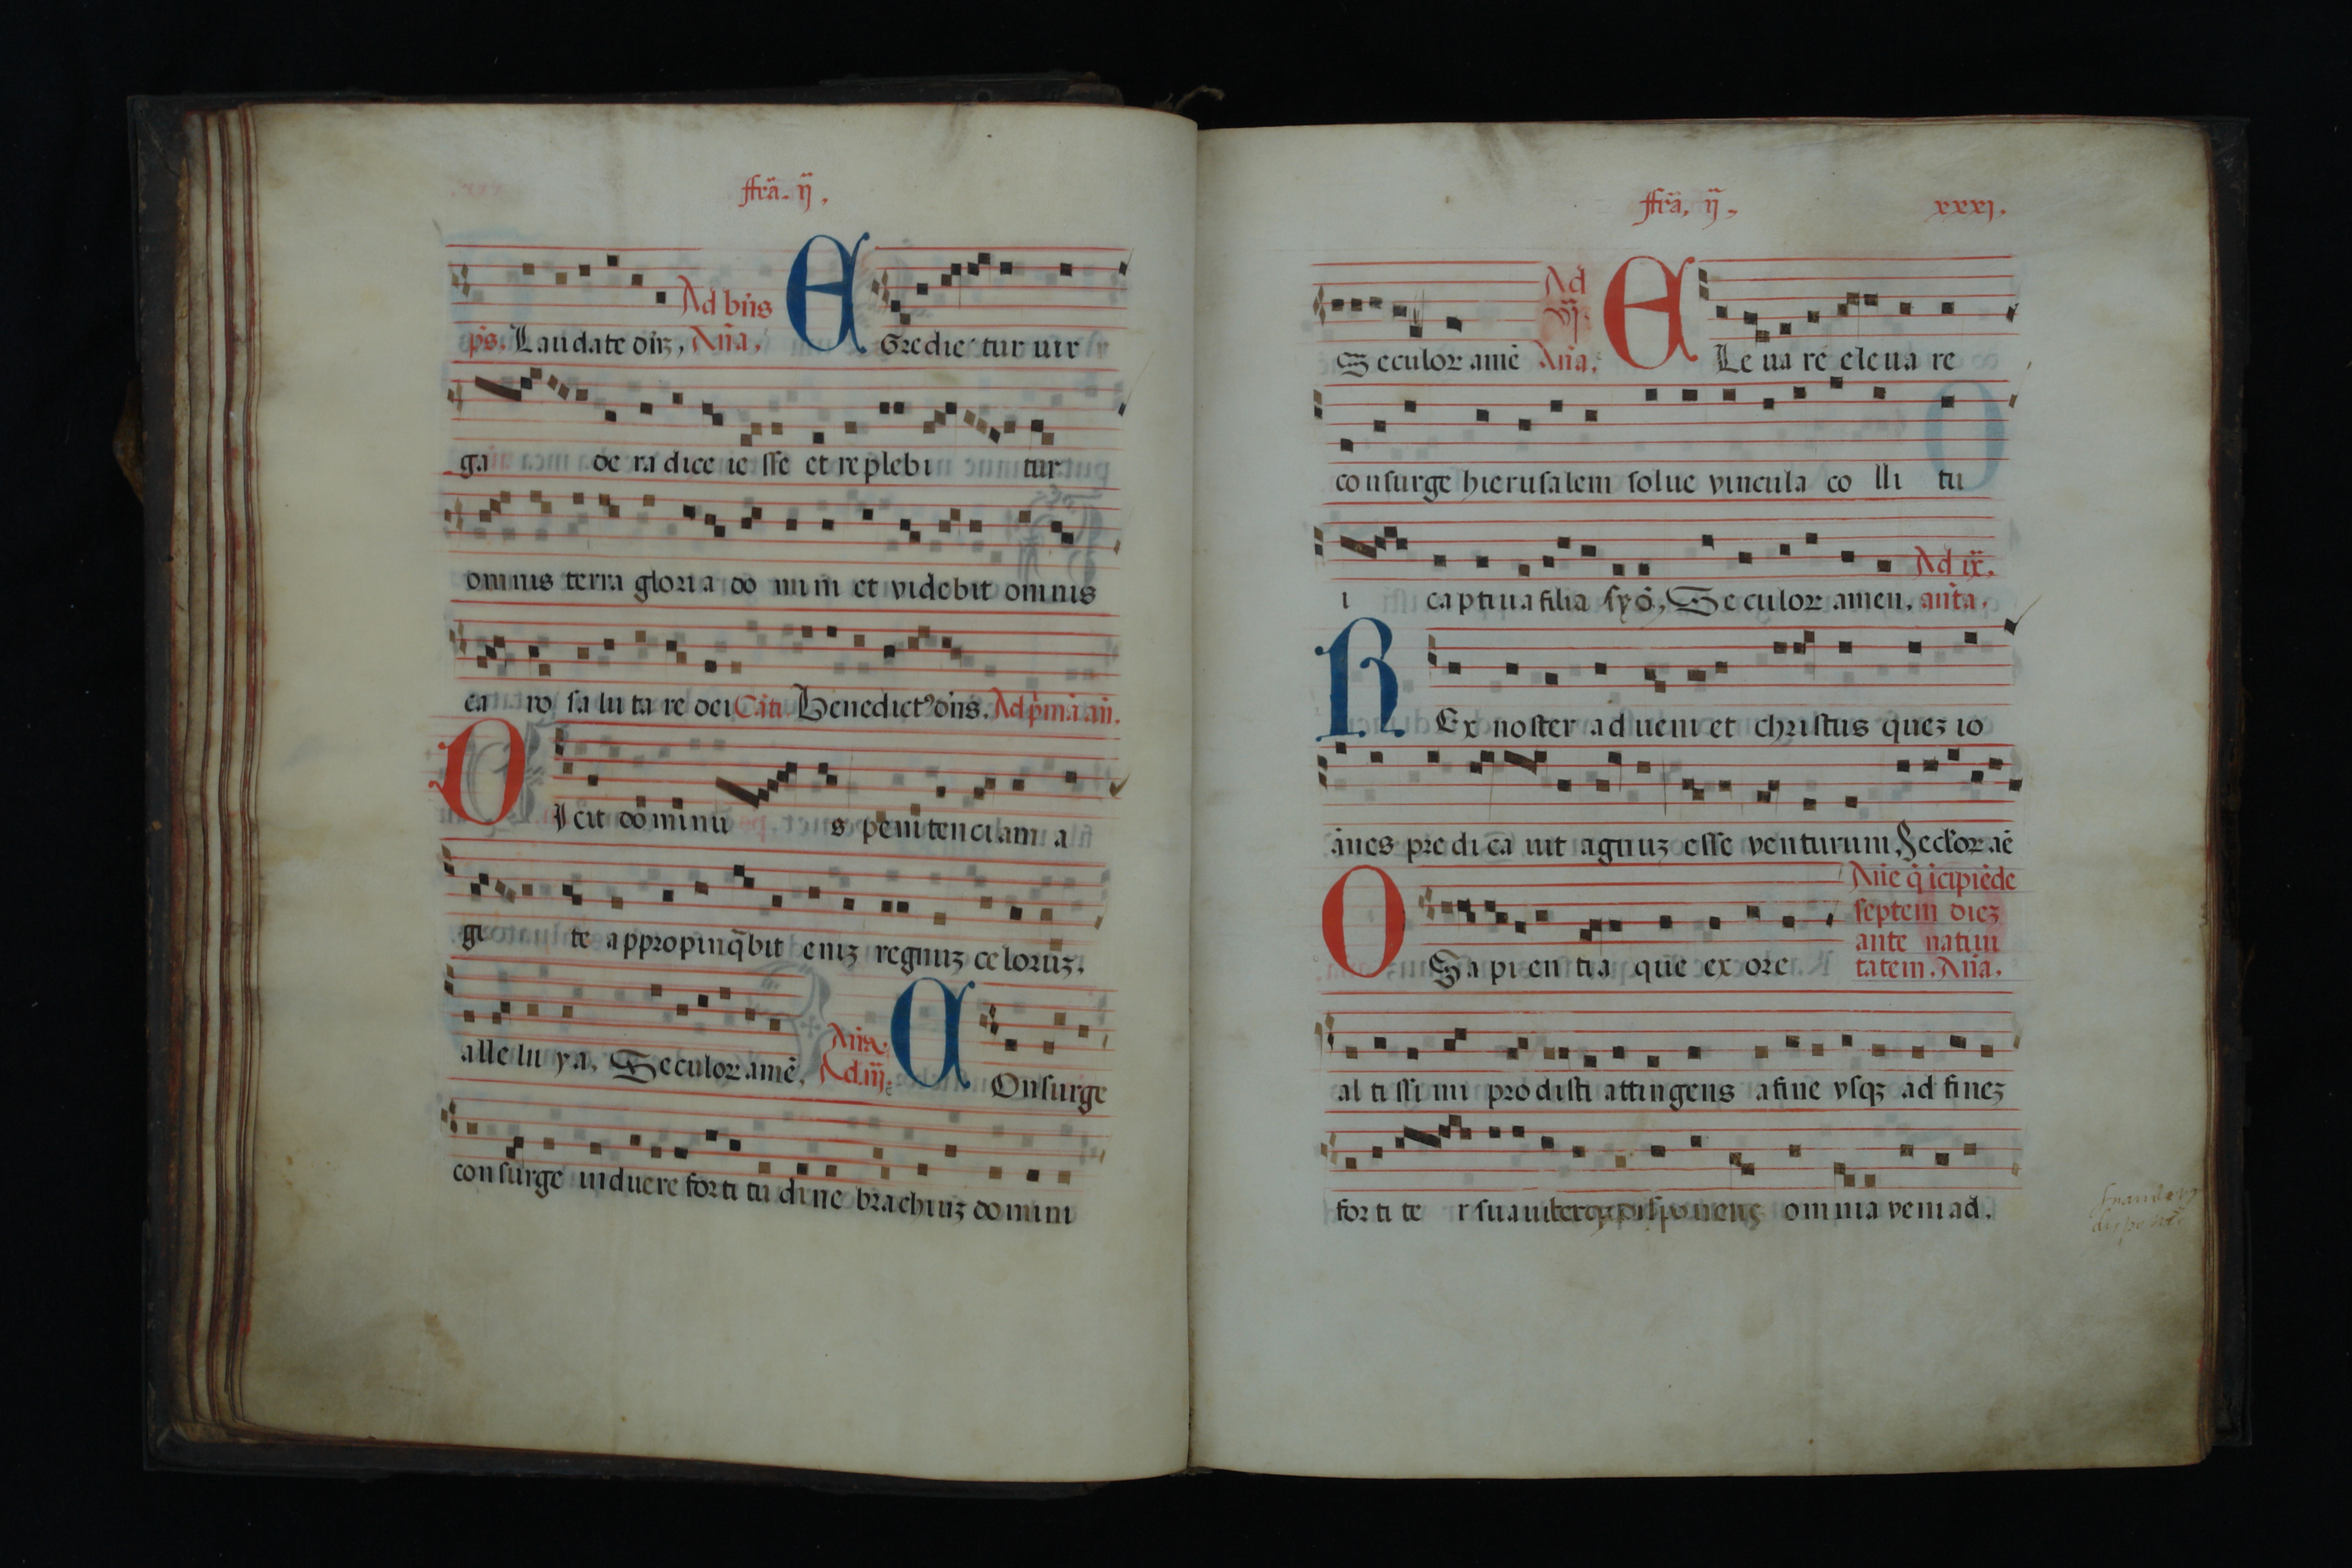 ffrã. ij.
Ad bñs
ps. Laudate dñz, Añã. E Gredie tur uir
ga de ra dice ie sse et replebi tur
omnis terra gloria do mi ni et videbit omnis
ca ro sa lu ta re dei Cãti. Benedict9 dñs. Ad p̃mã añ.
D Icit do minu s penitenciam a
gi te appropinq̃bit eniz regnuz celoruz.
alle lu ya, Seculor amẽ, Añã. Ad iij. C Onsurge
consurge induere forti tu dine brachiuz domini
ffrã. ij. xxxj.
Ad vj.
Seculor amẽ Añã. E Le ua re eleua re
consurge hierusalem solue vincula co lli tu
i captiua filia syõ, Seculor amen, añta. Ad ix.
R Ex noster adueni et christus quez io
ãnes predica uit agnuz esse venturum, Seclor aẽ
O Sapientia que ex ore
Añe q̃ icipiẽde
septem diez
ante natiui
tatem. Añã.
al ti ssi mi prodisti attingens a fine vsqz ad finez
for ti te r suauiterqz disponens omnia veni ad.